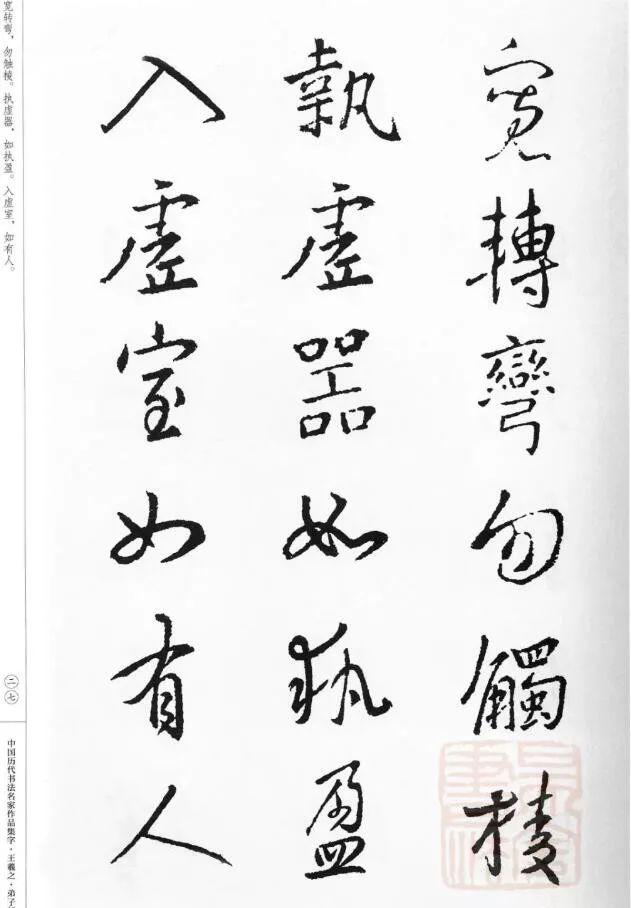 寬轉彎勿觸棱
執虛器如執盈
入虛室如有人
宽转弯，勿触棱。执虚器，如执盈。入虚室，如有人。
二七
中国历代书法名家作品集字·王羲之·弟子